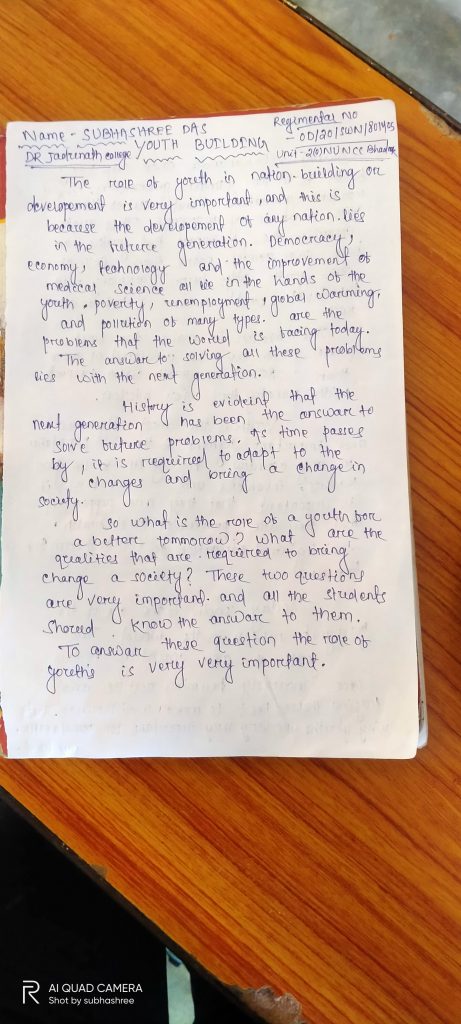 Name - SUBHASHREE DAS
Regimental No
- OD/20/SWN/801405
DR Jadunath college
YOUTH BUILDING
Unit - 2(O) NU NCC Bhadrak
The role of youth in nation-building or
developement is very important, and this is
because the developement of any nation lies
in the future generation. Democracy,
economy, technology and the improvement of
medical science all lie in the hands of the
youth. poverty, unemployment, global warming,
and pollution of many types. are the
problems that the world is facing today.
The answar to solving all these problems
lies with the next generation.
History is evideint that the
next generation has been the answar to
solve future problems. As time passes
by, it is required to adapt to the
changes and bring a change in
society.
So what is the role of a youth for
a better tommorow? What are the
qualities that are required to bring
change a society? These two questions
are very important. and all the students
Shoued know the answar to them.
To answar these question the role of
youths is very very important.
AI QUAD CAMERA
Shot by subhashree